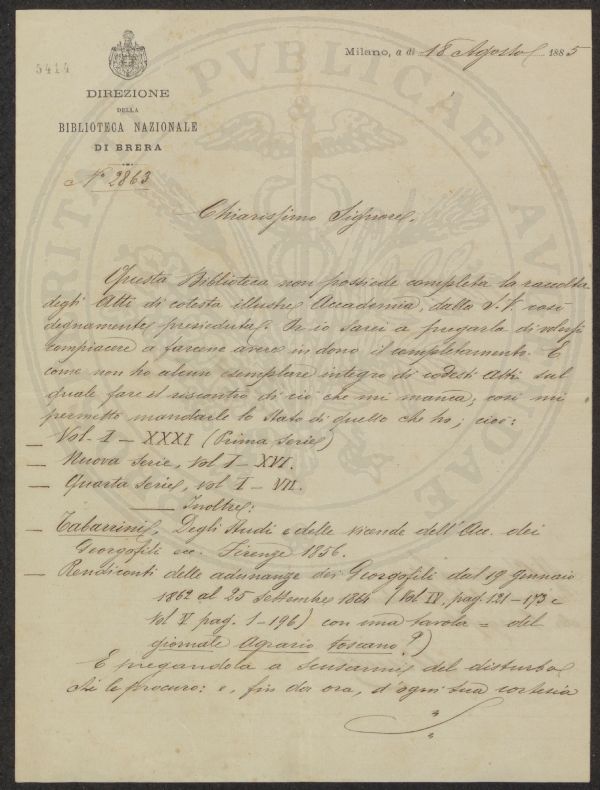 5414
Milano, a di 18 Agosto 1885
DIREZIONE
DELLA
BIBLIOTECA NAZIONALE
DI BRERA
N° 2863
Chiarissimo Signore,
Questa Biblioteca non possiede completa la raccolta
degli Atti di cotesta illustre Accademia, dalla S.V. così
degnamente presieduta. Ne io sarei a pregarla di volersi
compiacere a farcene avere in dono il completamento. E
come non ho alcun esemplare integro di codesti Atti sul
quale fare il riscontro di ciò che mi manca, così mi
permetto mandarle lo stato di quello che ho; cioè:
— Vol. I — XXXI (Prima Serie)
— Nuova Serie, vol I — XVI.
— Quarta Serie, vol I — VII.
— Inoltre:
— Tabarrini, Degli Studi e delle vicende dell'Acc. dei
Georgofili ecc. Firenze 1856.
— Rendiconti delle adunanze dei Georgofili dal 19 Gennaio
1862 al 25 Settembre 1864 (Vol IV. pag. 121-173 e
Vol V. pag. 1-196) con una tavola = del
giornale Agrario toscano?)
E pregandola a scusarmi del disturbo
che le procuro: e, fin da ora, d'ogni sua cortesia
PVBLICAE